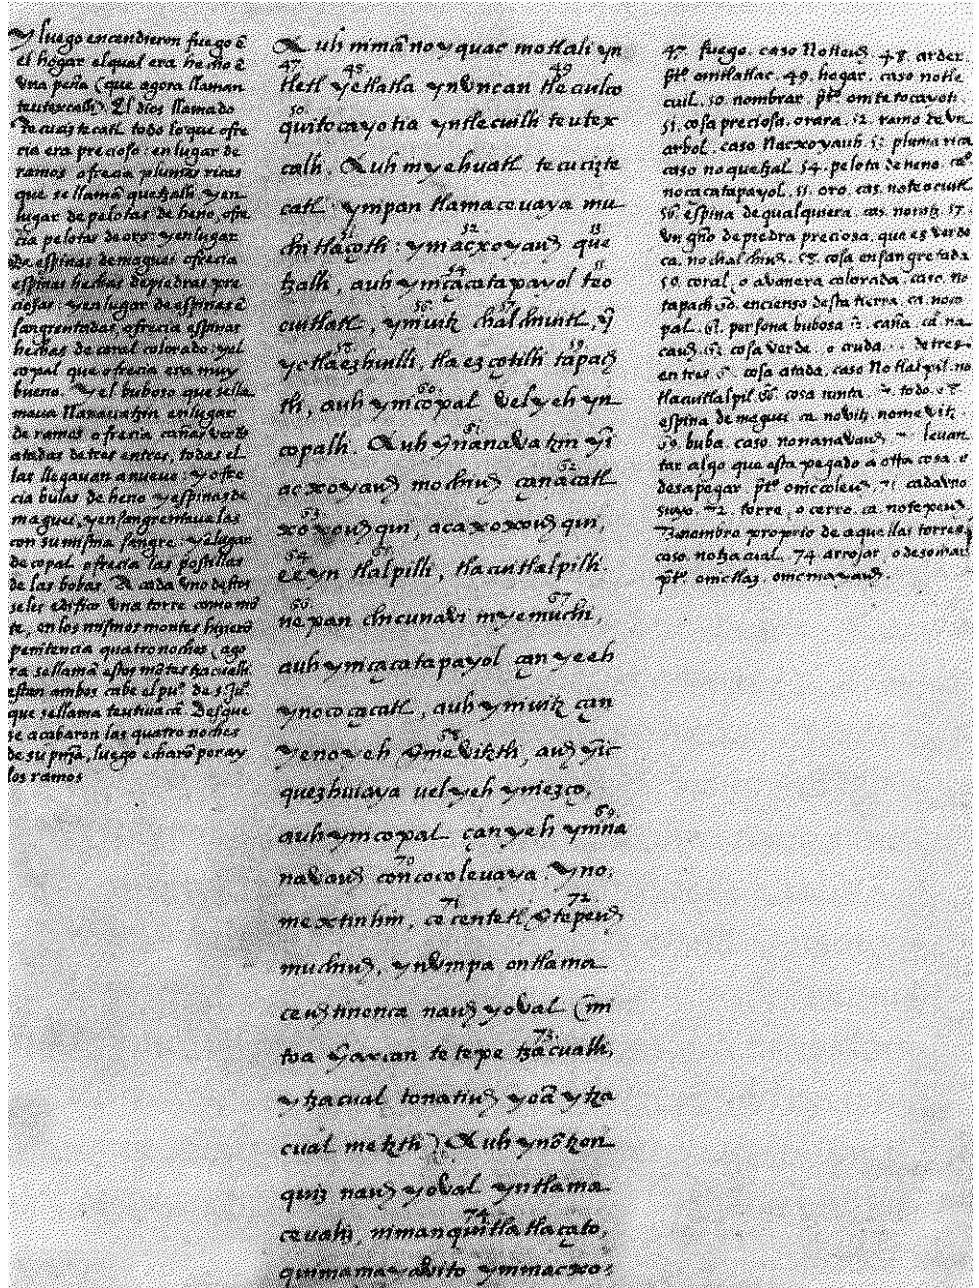 Y luego encendieron fuego ẽ
el hogar el qual era hecho ẽ
una peña (que agora llaman
teutexcalli). El dios llamado
Tecuciztecatl todo lo que ofre
cia era precioso: en lugar de
ramos ofrecia plumas ricas
que se llamã quetzalli y en
lugar de pelotas de heno, ofre
cia pelotas de oro: y en lugar
de espinas de maguei ofrecia
espinas hechas de piedras pre
ciosas: y en lugar de espinas ẽ
sangrentadas, ofrecia espinas
hechas de coral colorado: y el
copal que ofrecia era muy
bueno. Y el buboso que se lla
maua Nanauatzin en lugar
de ramos ofrecia cañas verdes
atadas de tres en tres, todas el
las llegauan a nueve: y ofre
cia bolas de heno y espinas de
maguei, y ensangrentaua las
con su misma sangre. y en lugar
de copal ofrecia las postillas
de las bobas. A cada uno destos
se les edifico una torre como mõ
te, en los mismos montes hizierõ
penitencia quatro noches (ago
ra se llamã estos mõtes tzacualli
estan ambos cabe el puº de s. Juº
que se llama teutiuacã. Desque
se acabaron las quatro noches
de su pnĩa, luego echarõ por ay
los ramos
Auh nimã no yquac motlali yn
47 48 49
tletl ye tlatla yn uncan tlecuilco
50
quitocayotia yn tlecuilli teutex
calli. Auh in yehuatl tecucizte
catl ympan tlamaceuaya mu
52 53
chi tlaçotli: ymacxoyauh que
54 55
tzalli, auh ymçacatapayol teo
56 57
cuitlatl, ymuitz chalchiuitl, ỹ
58
yc tlaezhuilli, tlaezçotilli tapach
60
tli, auh ymcopal vel yeh yn
61
copalli. Auh yn nanavatzin yĩ
62
acxoyauh mochiuh çan acatl
63
xoxouhqui, acaxoxouhqui,
64 65
eeyn tlalpilli, tlacuitlalpilli.
66 67
nepan chicunavi in ye muchi,
auh ymçacatapayol çan yeeh
yn ococacatl, auh ymuitz çan
68
ye no yeh ymevitztli, auh yĩc
quezhuiaya uel yeh yniezço.
69
auh ymcopal çan yeh ynina
70
navauh concocolevaya. Yno,
71 72
mextinhin, cecentetl ytepeuh
muchiuh, yn umpa ontlama
ceuhtinenca nauh yoval (mi
73
toa yn axcan tetepe tzacualli,
ytzacual tonatiuh yoã ytza
cual metztli) Auh yn õtzon
quiz nauh yoval yn tlama
74
cevaliz, niman quitlatlaçato,
quimamayavito ymmacxo:
47. fuego. caso Notleuh. 48. arder.
ptº. omtlatlac. 49. hogar. caso notle
cuil. 50. nombrar. ptº. omtetocayoti.
51. cosa preciosa. orara. 52. ramo de un
arbol. caso Nacxoyauh. 53. pluma rica
caso noquetzal. 54. pelota de heno. caº
noçacatapayol. 55. oro. cas. noteocuitl
56. espina de qualquiera. cas. nouitz. 57.
un gñº de piedra preciosa. que es verde
ca. nochalchiuh. 58. cosa ensangretada
59. coral, o avanera colorada. caso. no
tapach. 60. encienso desta tierra. ca. noco
pal. 61. persona bubosa. 62. caña. ca. na
cauh. 63. cosa verde. o cruda. 64. de tres
en tres 65. cosa atada, caso Notlalpil. no
tlacuitlalpil. 66. cosa junta. 67. todo. 68.
espina de maguei. ca. novitz, nomevitz
69. buba. caso nonanavauh. 70. levan
tar algo que esta pegado a otra cosa. o
desapegar. ptº. onicoleuh. 71. cada uno
suyo. 72. torre, o cerro. ca. notepeuh.
73. nombre proprio de aquellas torres.
caso. notzacual. 74. arrojar o desomar
ptº. onictlaz, onicmayauh.